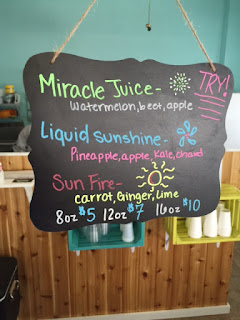 Miracle Juice- TRY!
Watermelon, beet, apple
Liquid sunshine-
Pineapple, apple, Kale, chard
Sun Fire-
carrot, Ginger, Lime
8oz $5 12oz $7 16oz $10